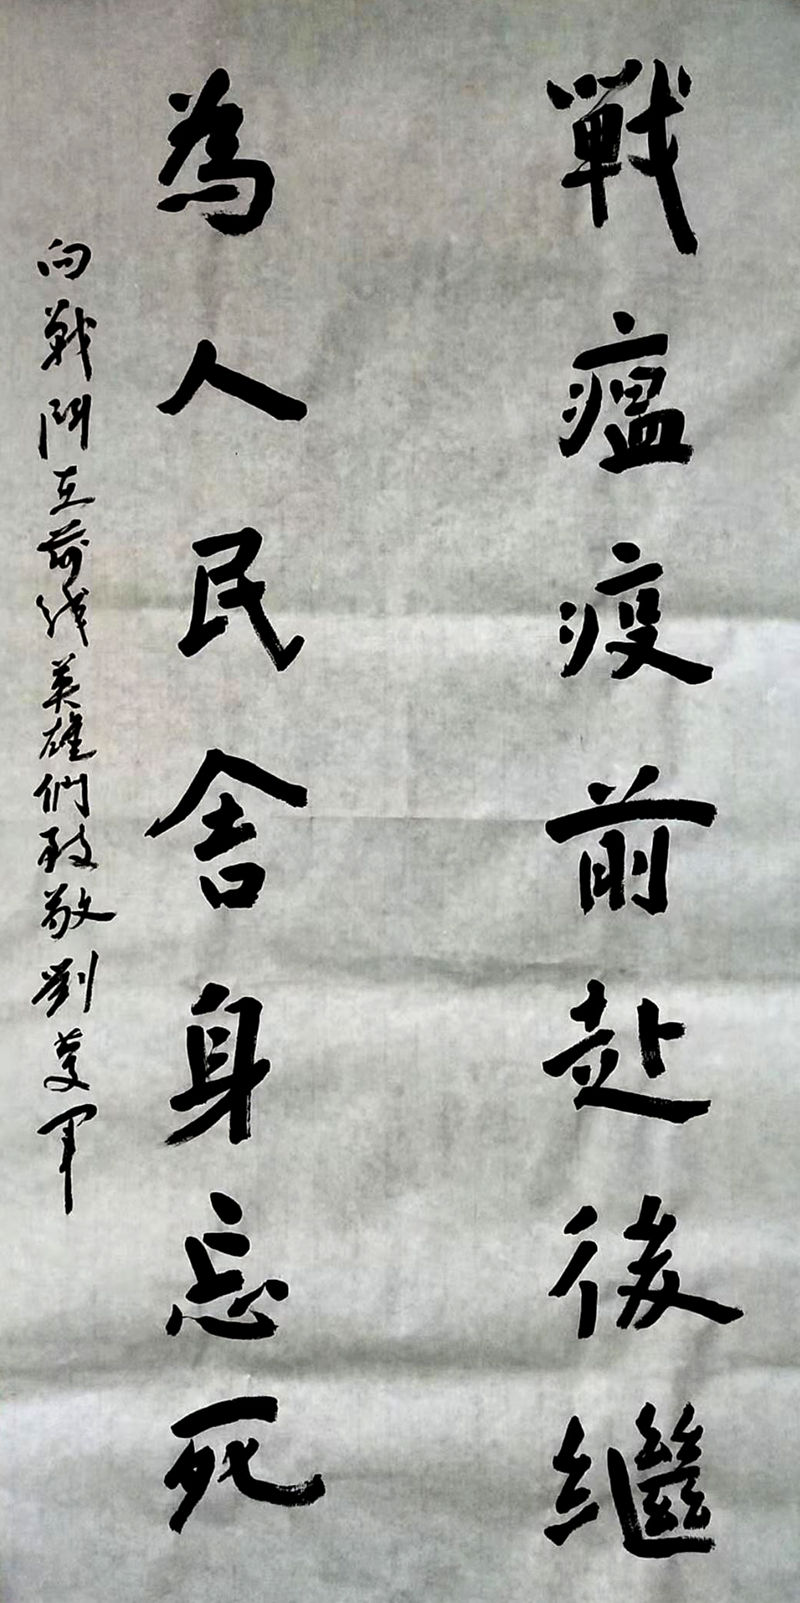 戰瘟疫前赴後繼
為人民舍身忘死
向戰鬥在前线英雄們致敬劉蔓军